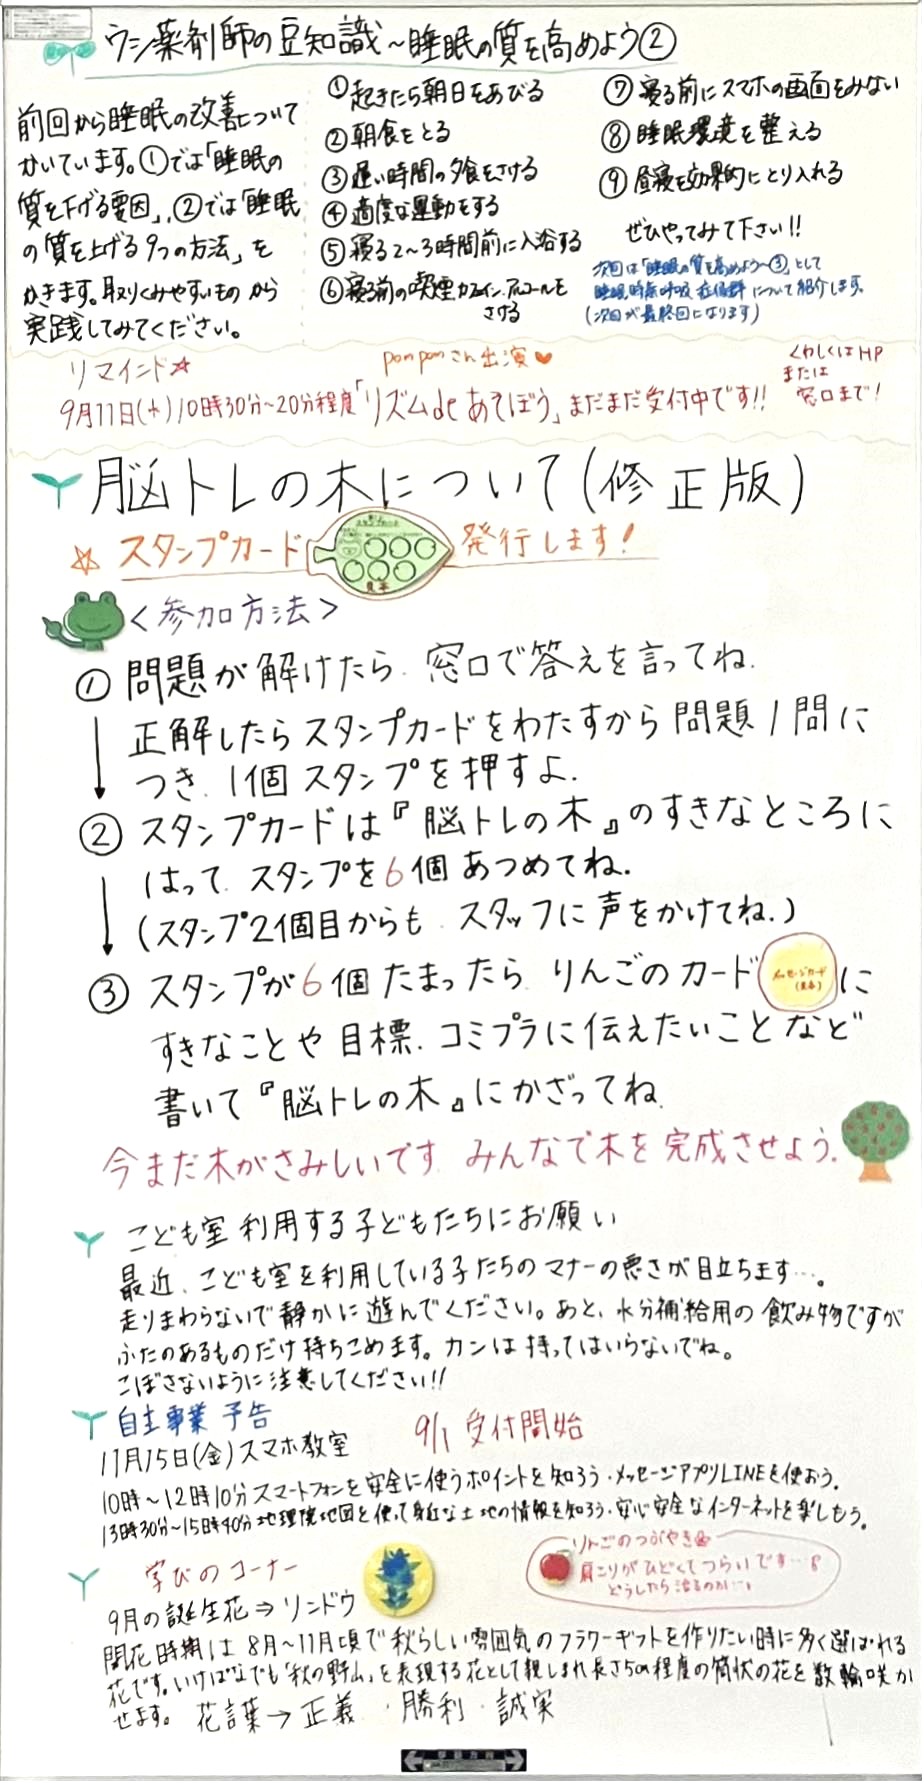 ウシ薬剤師の豆知識～睡眠の質を高めよう②
前回から睡眠の改善について
かいています。①では「睡眠の
質を下げる要因」、②では「睡眠
の質を上げる9つの方法」を
かきます。取りくみやすいものから
実践してみてください。
①起きたら朝日をあびる
②朝食をとる
③遅い時間の夕食をさける
④適度な運動をする
⑤寝る2～3時間前に入浴する
⑥寝る前の喫煙カフェイン、アルコールを
さける
⑦寝る前にスマホの画面をみない
⑧睡眠環境を整える
⑨昼寝を効果的にとり入れる
ぜひやってみて下さい!!
次回は「睡眠の質を高めよう～③」として
睡眠時無呼吸症候群について紹介します。
(次回が最終回になります)
リマインド☆
pompomさん出演♥
9月11日(水)10時30分～20分程度「リズムdeあそぼう」まだまだ受付中です!!
くわしくはHP
または
窓口まで!
脳トレの木について(修正版)
☆スタンプカード
スタンプカード
見本
発行します!
<参加方法>
①問題が解けたら、窓口で答えを言ってね。
正解したらスタンプカードをわたすから問題1問に
つき、1個スタンプを押すよ.
②スタンプカードは『脳トレの木』のすきなところに
はって、スタンプを6個あつめてね.
(スタンプ2個目からも、スタッフに声をかけてね.)
③スタンプが6個たまったら、りんごのカード
メッセージカード
(見本)
に
すきなことや目標、コミプラに伝えたいことなど
書いて『脳トレの木』にかざってね.
今まだ木がさみしいです、みんなで木を完成させよう.
こども室利用する子どもたちにお願い
最近、こども室を利用している子たちのマナーの悪さが目立ちます…。
走りまわらないで静かに遊んでください。あと、水分補給用の飲み物ですが
ふたのあるものだけ持ちこめます。カンは持ってはいらないでね。
こぼさないように注意してください!!
自主事業予告
9/1受付開始
11月15日(金)スマホ教室
10時～12時10分スマートフォンを安全に使うポイントを知ろう・メッセージアプリLINEを使おう.
13時30分～15時40分地理院地図を使って身近な土地の情報を知ろう・安心安全なインターネットを楽しもう。
学びのコーナー
りんごのつぶやき
肩こりがひどくてつらいです…
どうしたら治るのか…
9月の誕生花⇒リンドウ
開花時期は8月～11月頃で秋らしい雰囲気のフラワーギフトを作りたい時に多く選ばれる
花です。いけばなでも「秋の野山」を表現する花として親しまれ長さ5cm程度の筒状の花を数輪咲か
せます。 花言葉→正義・勝利・誠実